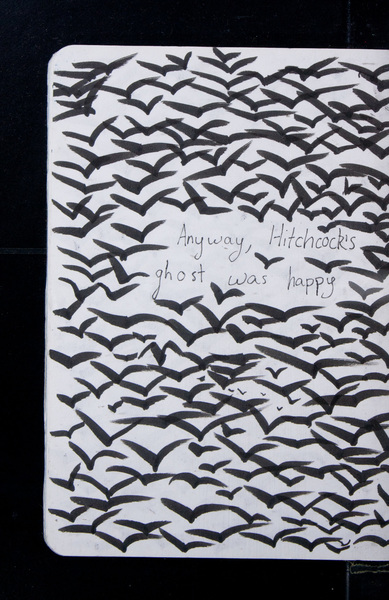 Anyway, Hitchcock's
ghost was happy